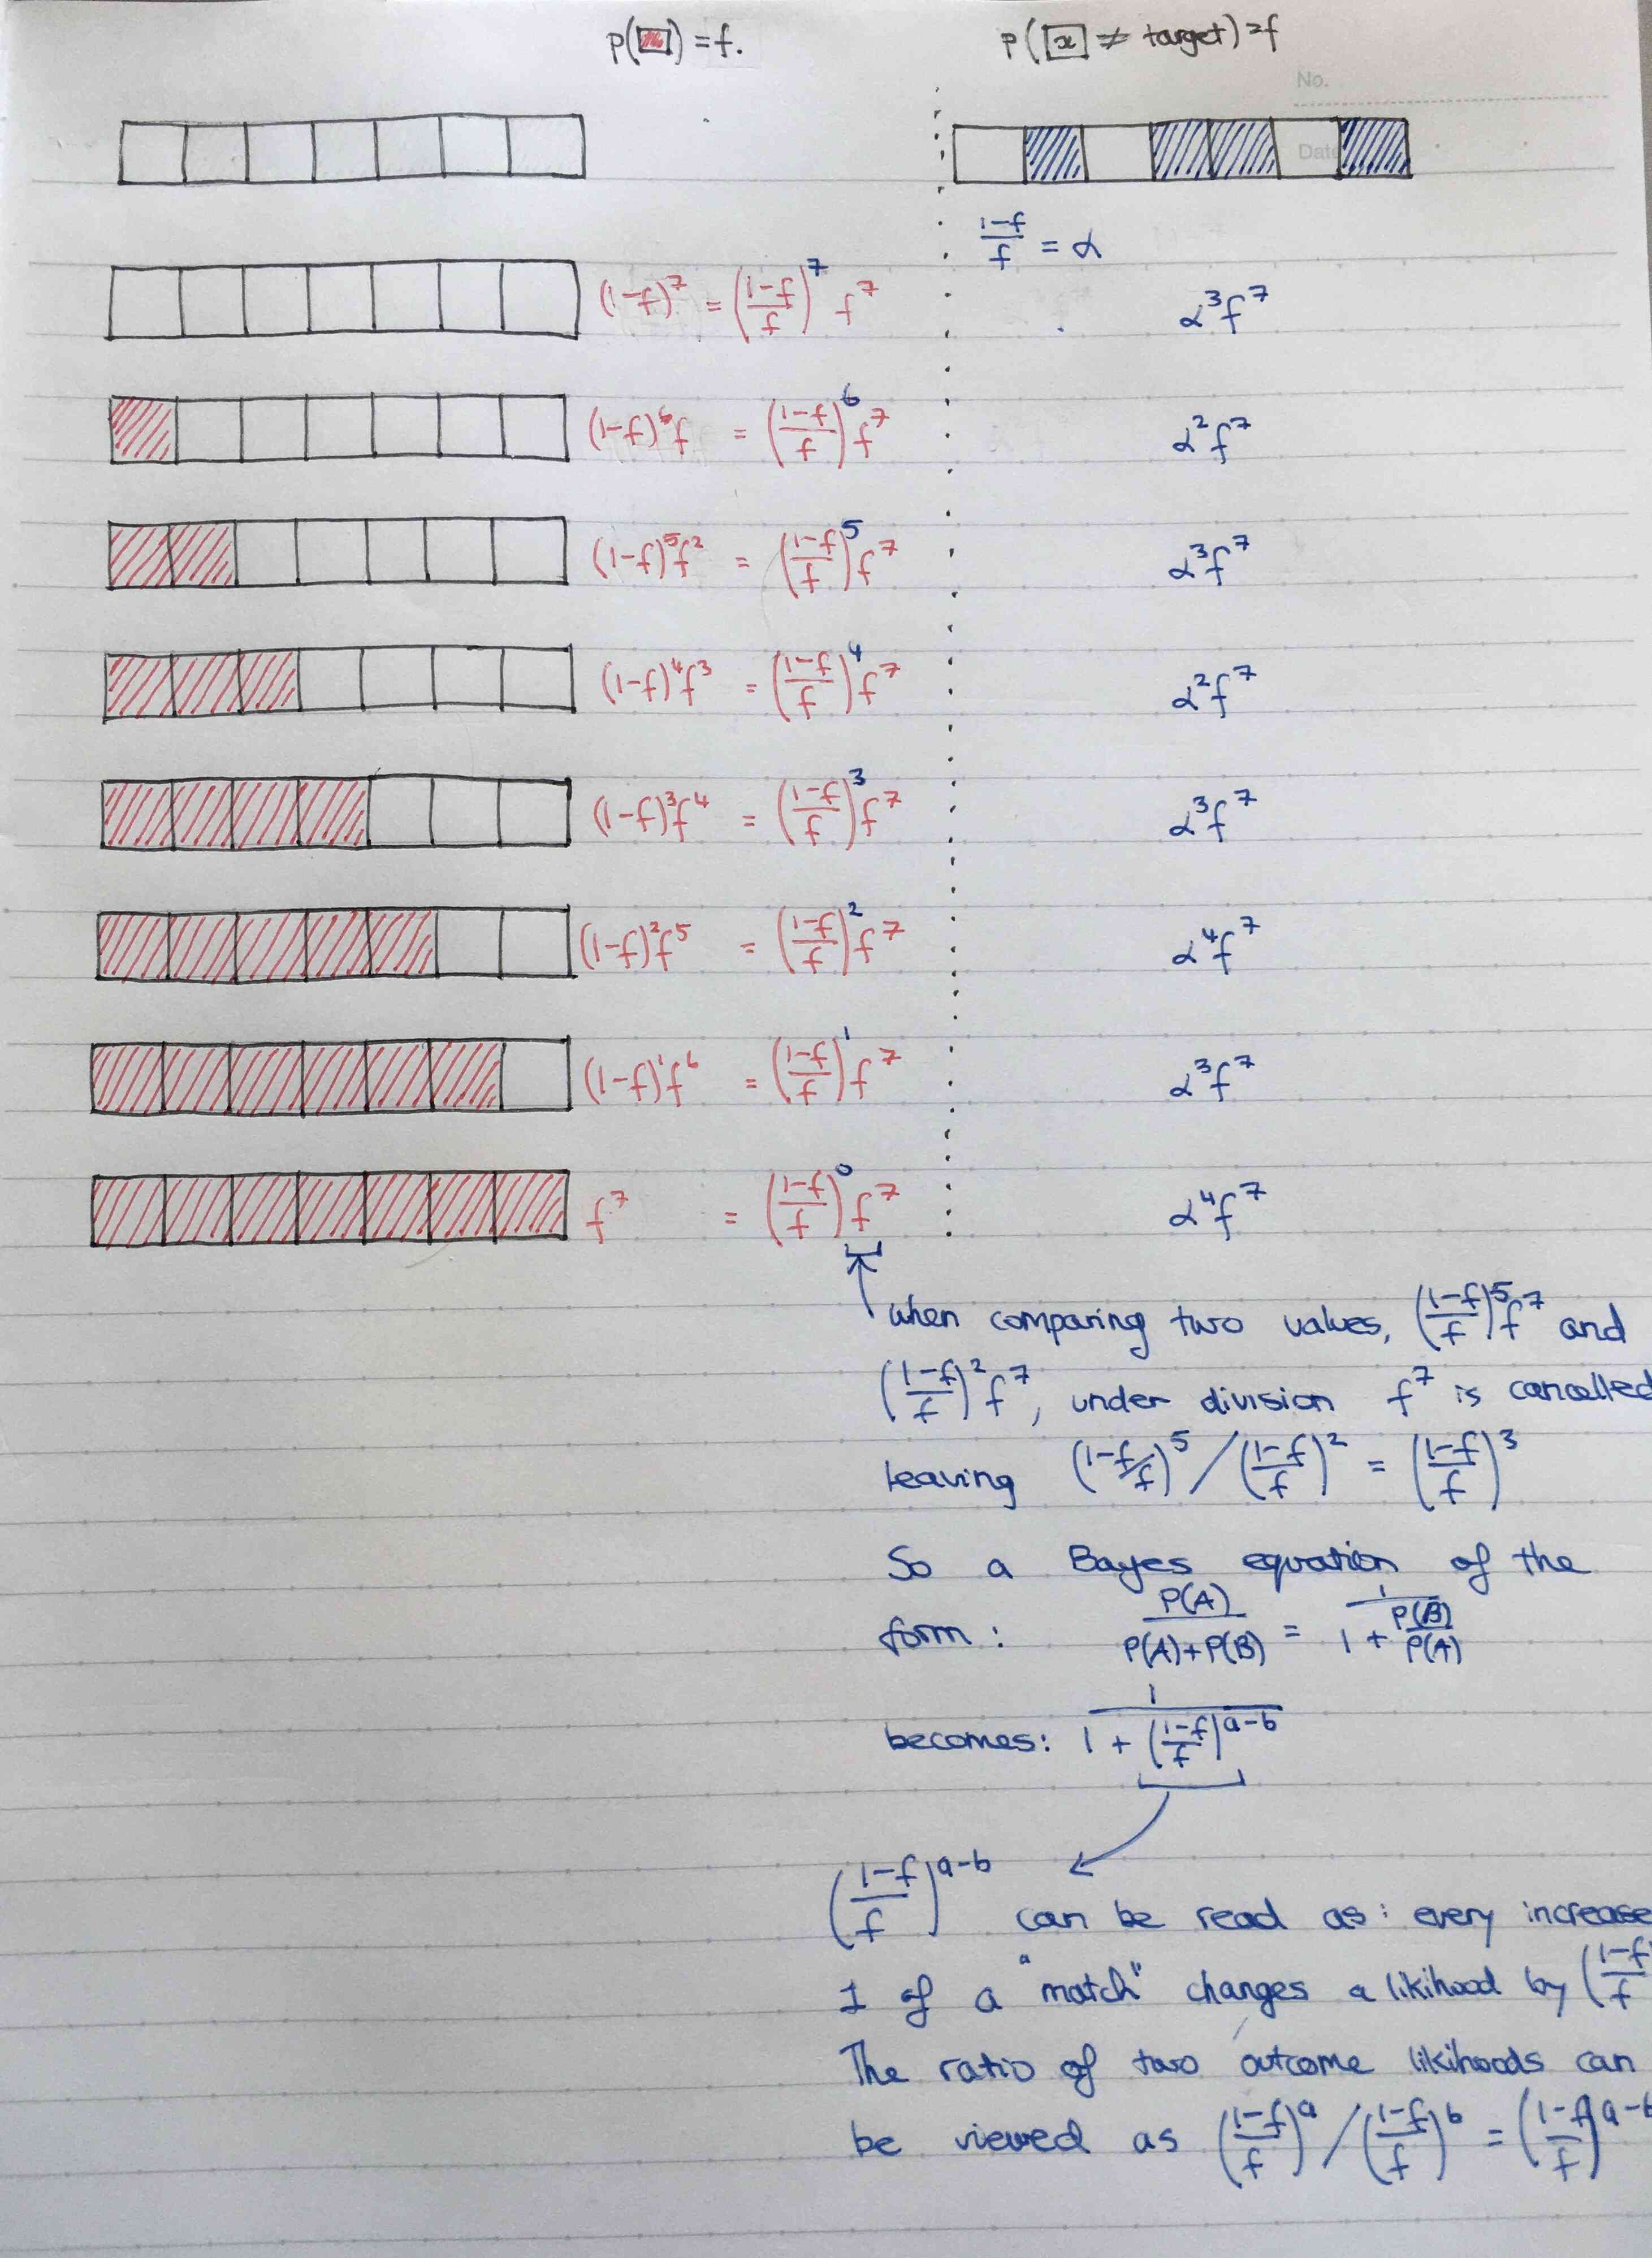 p(▨) = f.
p([x] ≠ target) = f
No.
Date
(1-f)/f = α
(1-f)^7 = ((1-f)/f)^7 f^7    α^3 f^7
(1-f)^6 f = ((1-f)/f)^6 f^7    α^2 f^7
(1-f)^5 f^2 = ((1-f)/f)^5 f^7    α^3 f^7
(1-f)^4 f^3 = ((1-f)/f)^4 f^7    α^2 f^7
(1-f)^3 f^4 = ((1-f)/f)^3 f^7    α^3 f^7
(1-f)^2 f^5 = ((1-f)/f)^2 f^7    α^4 f^7
(1-f)^1 f^6 = ((1-f)/f)^1 f^7    α^3 f^7
f^7 = ((1-f)/f)^0 f^7    α^4 f^7
when comparing two values, ((1-f)/f)^5 f^7 and
((1-f)/f)^2 f^7, under division f^7 is cancelled
leaving (1-f/f)^5 / ((1-f)/f)^2 = ((1-f)/f)^3
So a Bayes equation of the
form: P(A)/(P(A)+P(B)) = 1/(1 + P(B)/P(A))
becomes: 1/(1 + ((1-f)/f)^(a-b))
((1-f)/f)^(a-b) can be read as: every increase
1 of a "match" changes a likihood by ((1-f)/f
The ratio of two outcome likihoods can
be viewed as ((1-f)/f)^a / ((1-f)/f)^b = ((1-f)/f)^(a-b